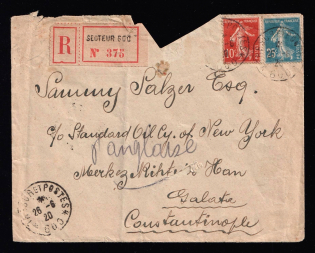 R
SECTEUR 506
N° 375
10
25
Sammy Salzer Esq.
c/o Standard Oil Co. of New York
anglaise
Merkez Rihtim Han
Galata
Constantinople
POSTES
26 - 6
20